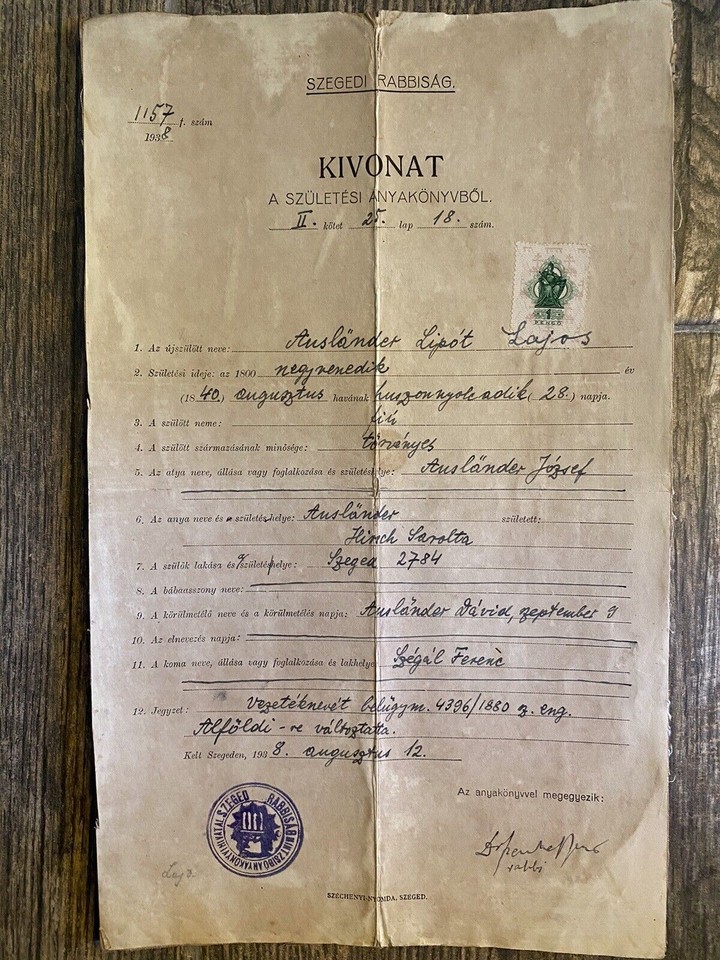 SZEGEDI RABBISÁG.
1157 f. szám
1938
KIVONAT
A SZÜLETÉSI ANYAKÖNYVBŐL.
II. kötet 25. lap 18. szám.
1
PENGŐ
1. Az újszülött neve: Ausländer Lipót Lajos
2. Születési ideje: az 1800 negyvenedik év
(18 40.) augusztus havának huszonnyolcadik (28.) napja.
3. A szülött neme: fiú
4. A szülött származásának minősége: törvényes
5. Az atya neve, állása vagy foglalkozása és születéshelye: Ausländer József
6. Az anya neve és születéshelye: Ausländer született:
Hirsch Sarolta
7. A szülők lakása és születéshelye: Szeged 2784
8. A bábaasszony neve:
9. A körülmetélő neve és a körülmetélés napja: Ausländer Dávid, szeptember 9
10. Az elnevezés napja:
11. A koma neve, állása vagy foglalkozása és lakhelye: Szégál Ferenc
12. Jegyzet: Vezetéknevét belügym. 4396/1880 sz. eng.
Alföldi-re változtatta.
Kelt Szegeden, 1938. augusztus 12.
Az anyakönyvvel megegyezik:
SZEGED RABBISÁG
rabbi
SZÉCHENYI-NYOMDA, SZEGED.